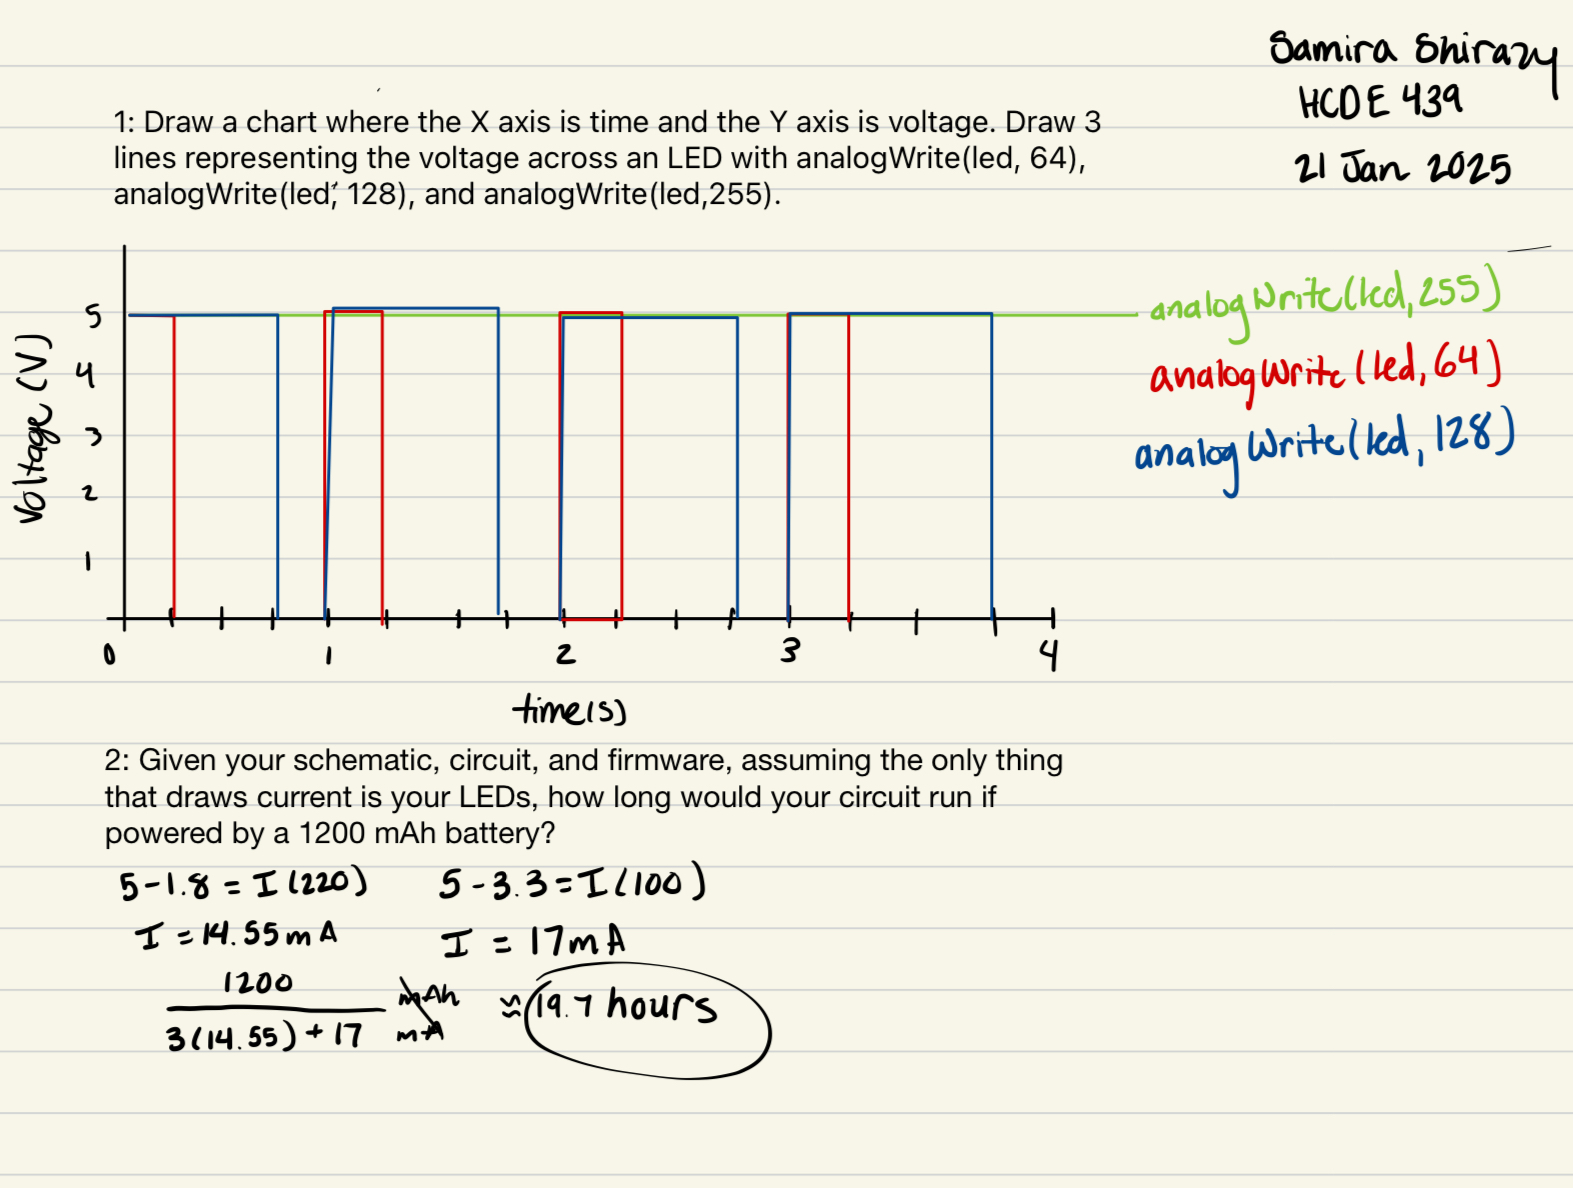 Samira Shirazy
HCDE 439
21 Jan 2025
1: Draw a chart where the X axis is time and the Y axis is voltage. Draw 3
lines representing the voltage across an LED with analogWrite(led, 64),
analogWrite(led, 128), and analogWrite(led,255).
Voltage (V)
5
4
3
2
1
0 1 2 3 4
time(s)
analogWrite(led,255)
analogWrite(led,64)
analogWrite(led,128)
2: Given your schematic, circuit, and firmware, assuming the only thing
that draws current is your LEDs, how long would your circuit run if
powered by a 1200 mAh battery?
5-1.8 = I(220) 5-3.3=I(100)
I = 14.55mA I = 17mA
1200 mAh
3(14.55)+17 mA
≈ 19.7 hours